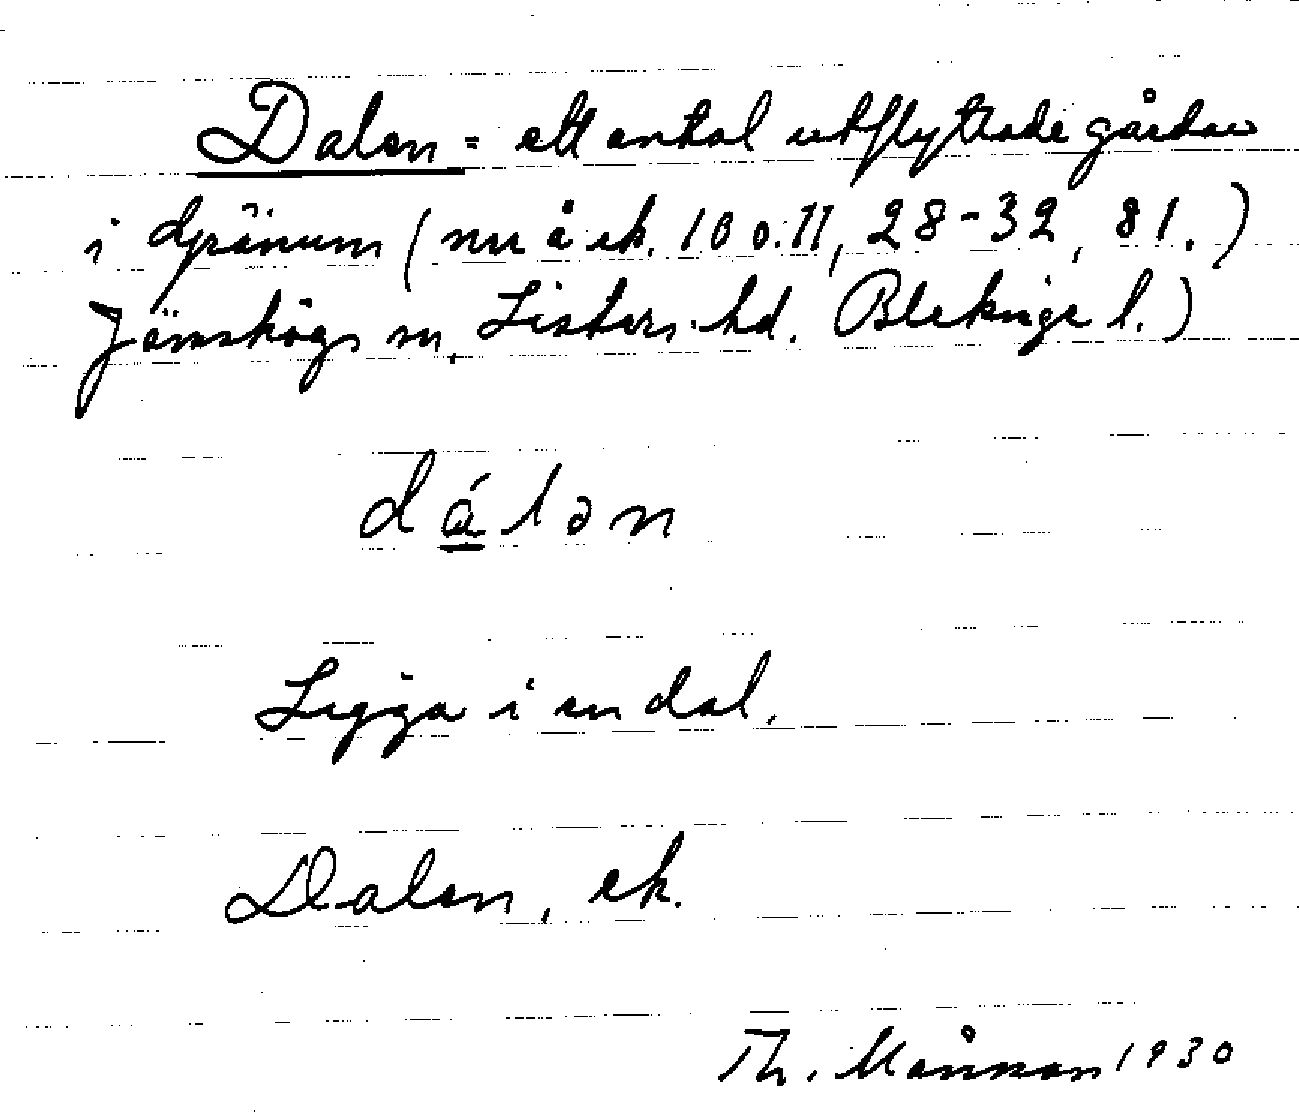 Dalen = ett antal utflyttade gårdar
i Gränum (nu å ek. 10 o. 11, 28-32, 81.)
Jämshögs sn, Listers hd. Blekinge l.)
dálən
Ligga i en dal.
Dalen, ek.
Th. Månsson 1930